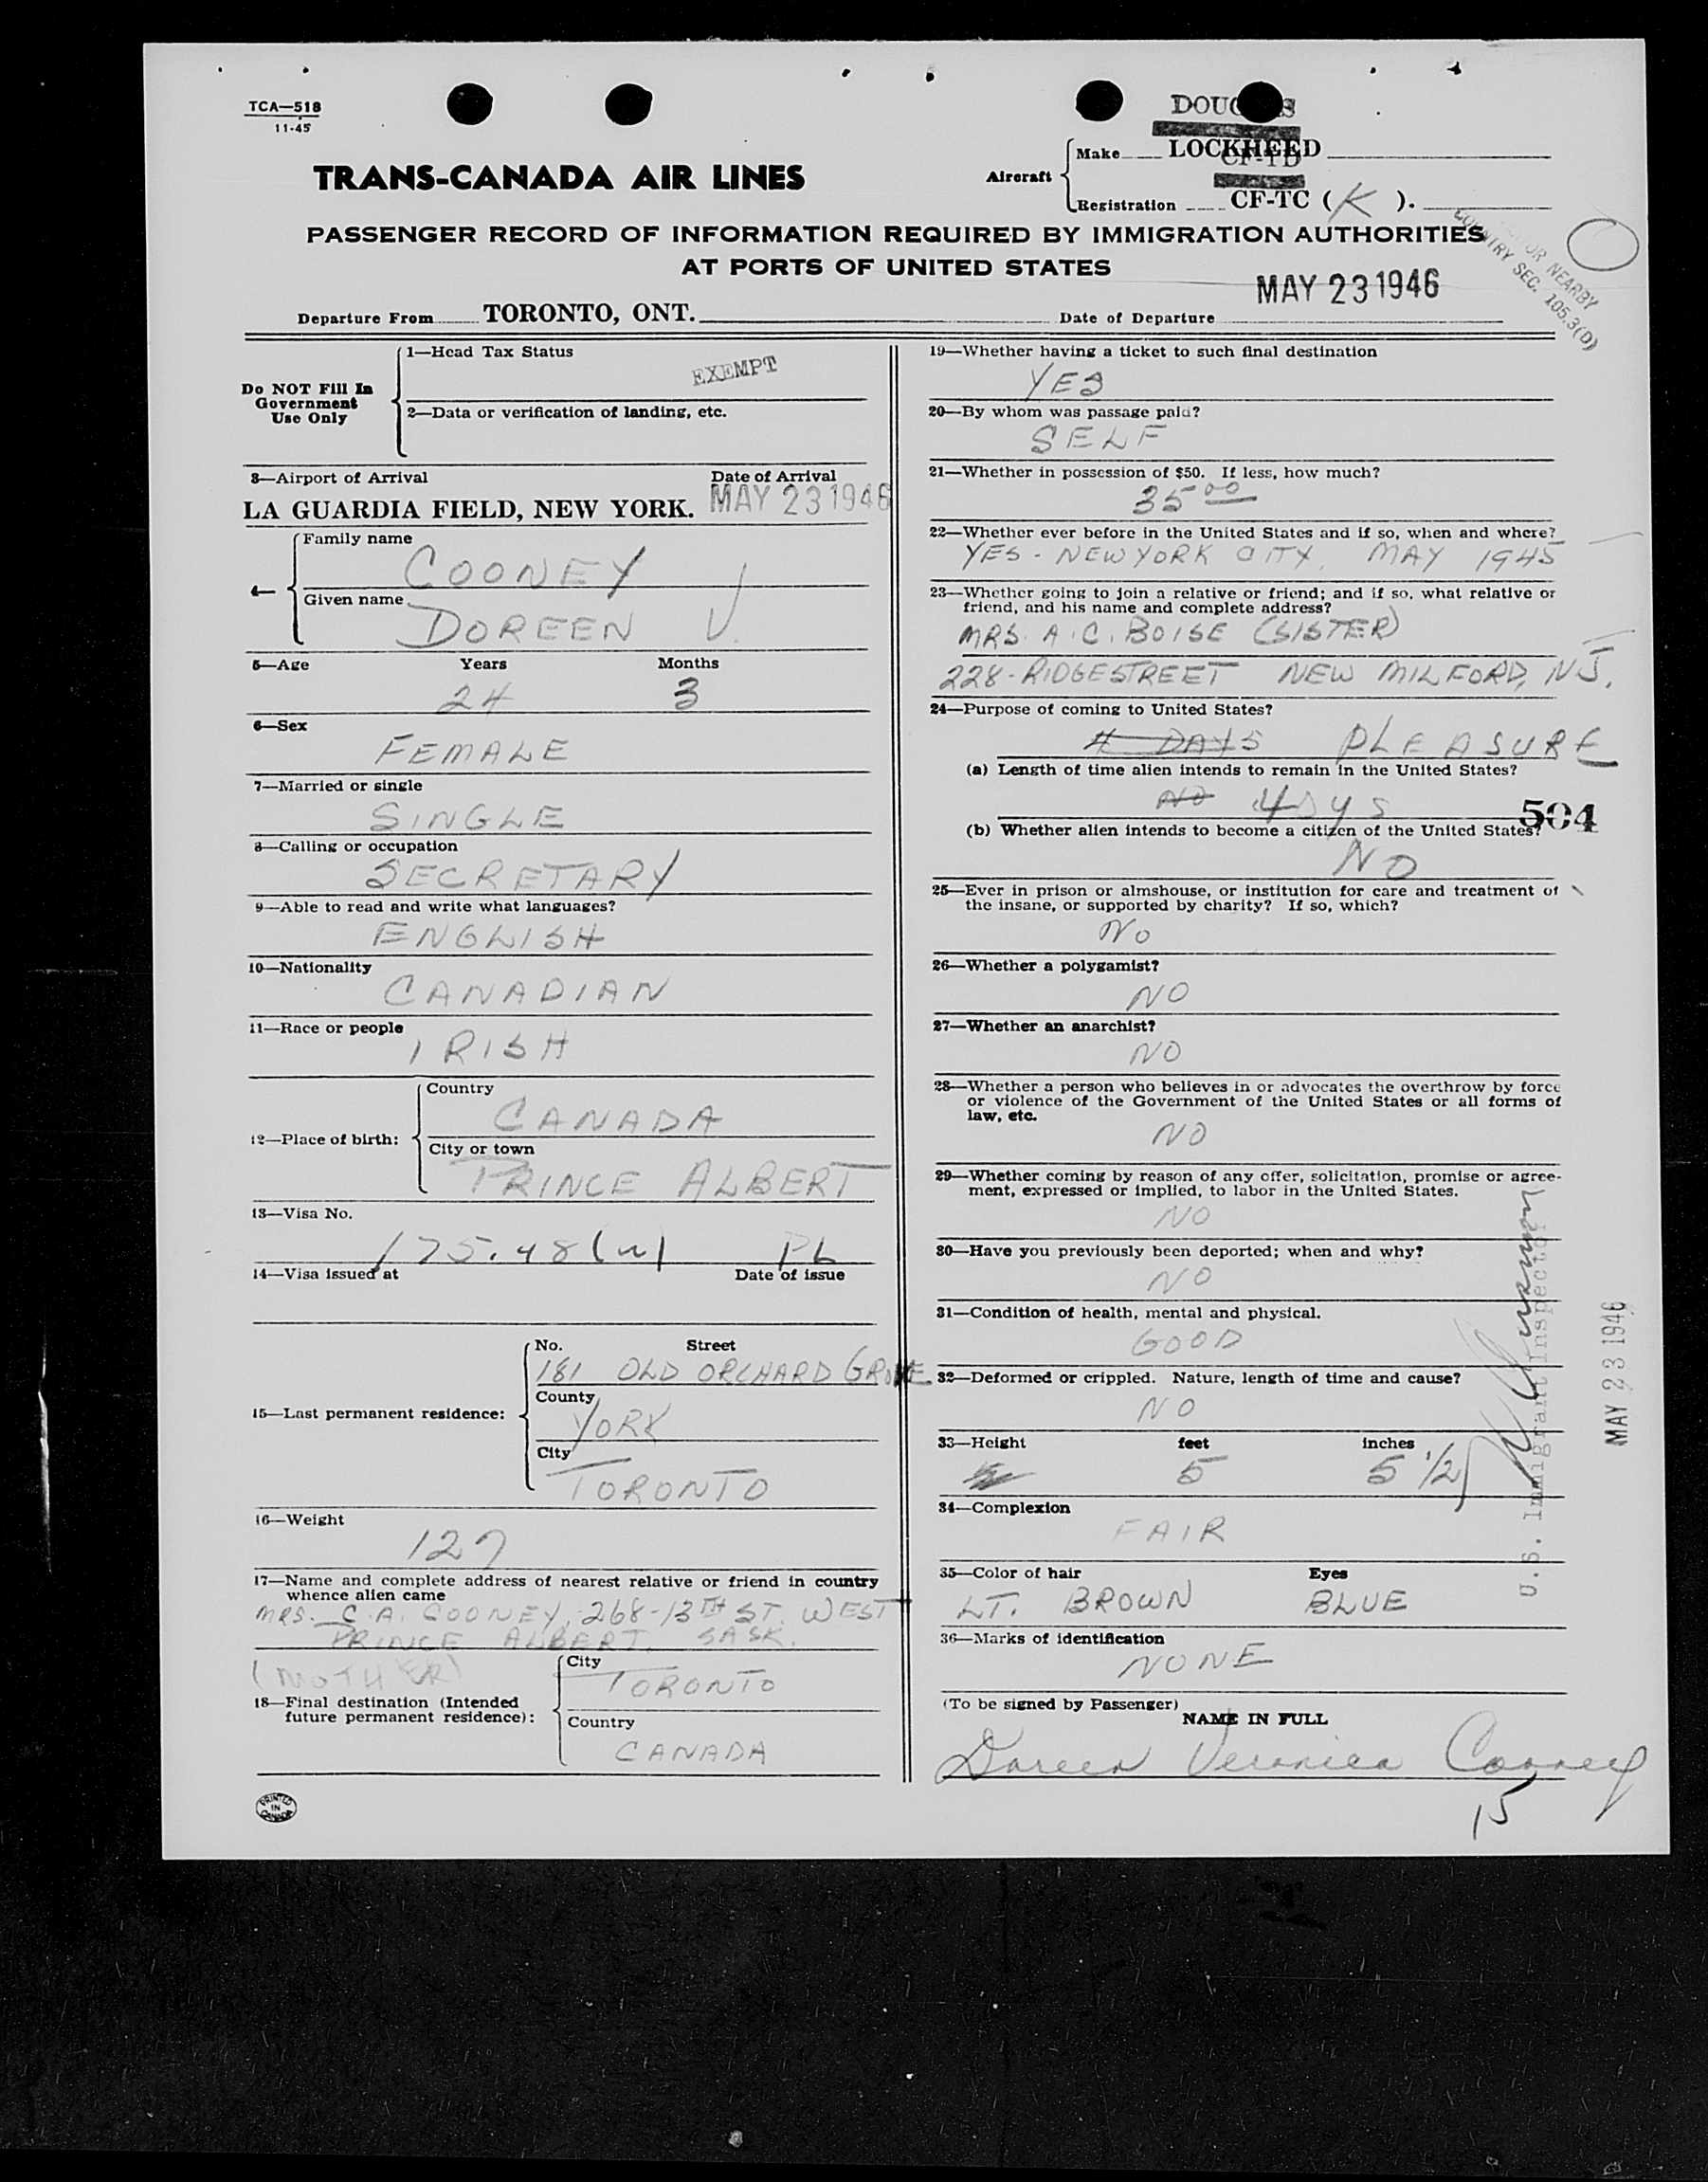 TCA—518
11-45
DOUGLAS
TRANS-CANADA AIR LINES
Aircraft
Make LOCKHEED
CF-TD
Registration CF-TC (K).
PASSENGER RECORD OF INFORMATION REQUIRED BY IMMIGRATION AUTHORITIES
AT PORTS OF UNITED STATES
OR NEARBY
SEC. 105.3(D)
Departure From TORONTO, ONT. Date of Departure MAY 23 1946
Do NOT Fill In
Government
Use Only
1—Head Tax Status
EXEMPT
2—Data or verification of landing, etc.
3—Airport of Arrival Date of Arrival
LA GUARDIA FIELD, NEW YORK. MAY 23 1946
4—
Family name
COONEY
Given name
DOREEN V.
5—Age Years Months
24 3
6—Sex
FEMALE
7—Married or single
SINGLE
8—Calling or occupation
SECRETARY
9—Able to read and write what languages?
ENGLISH
10—Nationality
CANADIAN
11—Race or people
IRISH
12—Place of birth:
Country
CANADA
City or town
PRINCE ALBERT
13—Visa No.
175.48 PL
14—Visa issued at Date of issue
15—Last permanent residence:
No. Street
181 OLD ORCHARD GROVE
County
YORK
City
TORONTO
16—Weight
127
17—Name and complete address of nearest relative or friend in country
whence alien came
MRS. C.A. COONEY, 268-13TH ST. WEST
PRINCE ALBERT, SASK.
(MOTHER)
18—Final destination (Intended
future permanent residence):
City
TORONTO
Country
CANADA
PRINTED
IN
CANADA
19—Whether having a ticket to such final destination
YES
20—By whom was passage paid?
SELF
21—Whether in possession of $50. If less, how much?
35 00
22—Whether ever before in the United States and if so, when and where?
YES - NEW YORK CITY, MAY 1945
23—Whether going to join a relative or friend; and if so, what relative or
friend, and his name and complete address?
MRS. A.C. BOISE (SISTER)
228-RIDGESTREET NEW MILFORD, NJ.
24—Purpose of coming to United States?
4 DAYS PLEASURE
(a) Length of time alien intends to remain in the United States?
NO 4 DYS
504
(b) Whether alien intends to become a citizen of the United States?
NO
25—Ever in prison or almshouse, or institution for care and treatment of
the insane, or supported by charity? If so, which?
NO
26—Whether a polygamist?
NO
27—Whether an anarchist?
NO
28—Whether a person who believes in or advocates the overthrow by force
or violence of the Government of the United States or all forms of
law, etc.
NO
29—Whether coming by reason of any offer, solicitation, promise or agree-
ment, expressed or implied, to labor in the United States.
NO
30—Have you previously been deported; when and why?
NO
31—Condition of health, mental and physical.
GOOD
32—Deformed or crippled. Nature, length of time and cause?
NO
33—Height feet inches
5 5 1/2
34—Complexion
FAIR
35—Color of hair Eyes
LT. BROWN BLUE
36—Marks of identification
NONE
U.S. Immigrant Inspector
MAY 23 1946
(To be signed by Passenger)
NAME IN FULL
Doreen Veronica Cooney
15